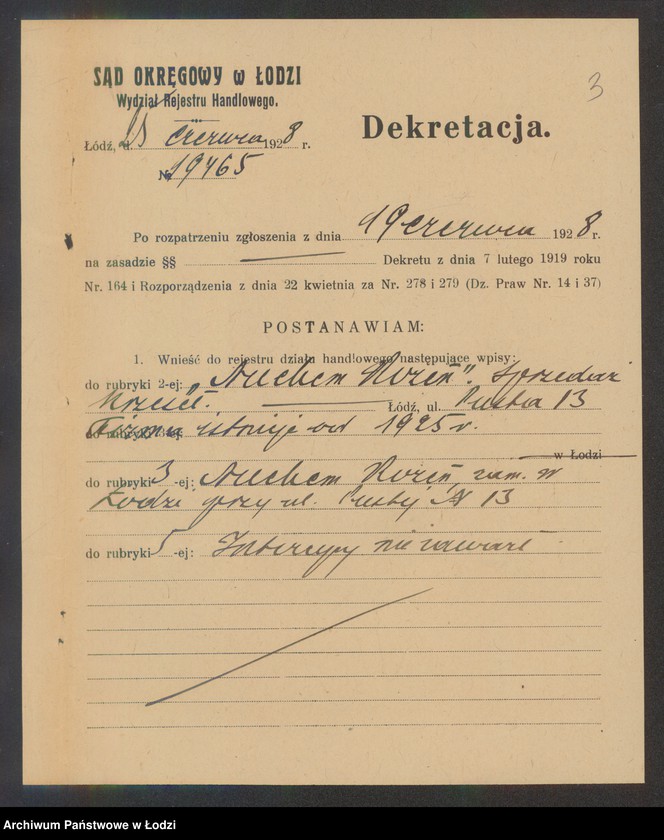 3
SĄD OKRĘGOWY w ŁODZI
Wydział Rejestru Handlowego.
Dekretacja.
Łódź, d. czerwca 1928 r.
№ 19465
Po rozpatrzeniu zgłoszenia z dnia 19 czerwca 1928 r.
na zasadzie §§ — Dekretu z dnia 7 lutego 1919 roku
Nr. 164 i Rozporządzenia z dnia 22 kwietnia za Nr. 278 i 279 (Dz. Praw Nr. 14 i 37)
POSTANAWIAM:
1. Wnieść do rejestru działu handlowego następujące wpisy:
do rubryki 2-ej: „Nuchem Rozen". Sprzedaż
krzeseł. — Łódź, ul. Pusta 13
Firma istnieje od 1925 r.
w Łodzi
do rubryki 3-ej: Nuchem Rozen, zam. w
Łodzi przy ul. Pustej № 13
do rubryki 5-ej: Intercyzy nie zawarł
Archiwum Państwowe w Łodzi